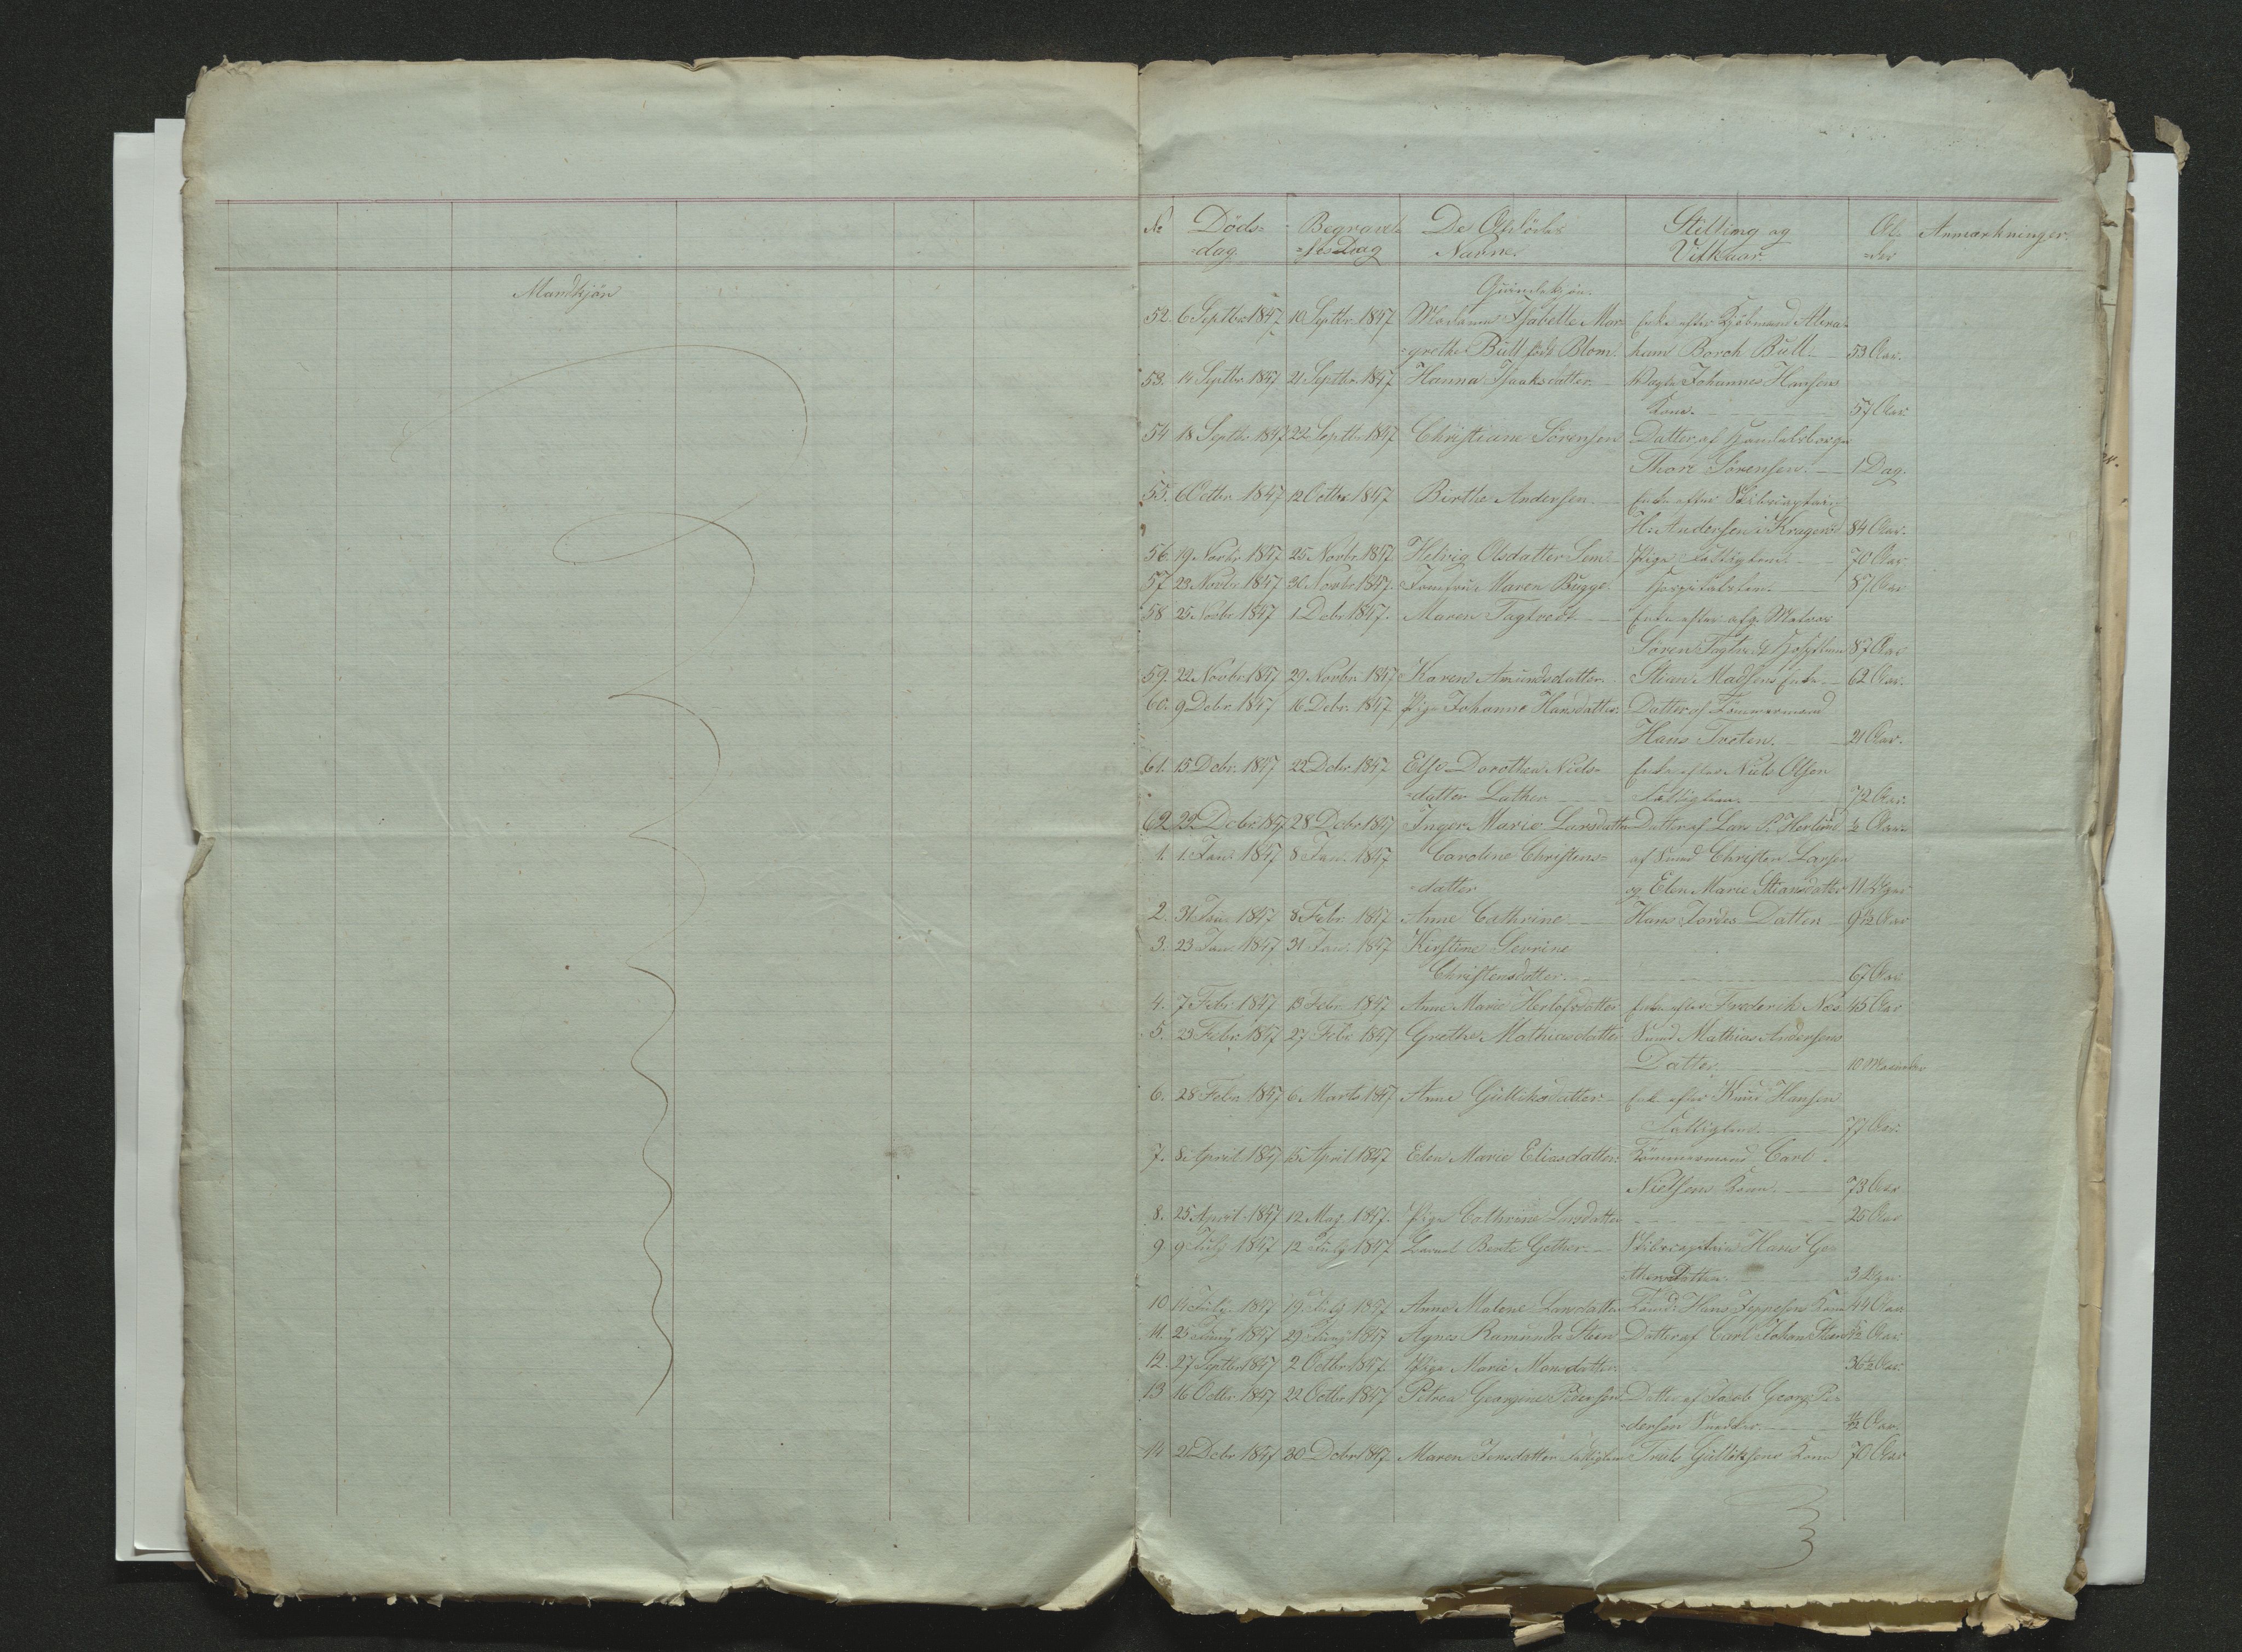 Mandkjøn
No Døds= Begravel= De Afdødes Stilling og Al= Anmærkninger.
=dag. =ses Dag Navne. Vilkaar. =der
Qvindekjøn.
52. 6 Septbr 1847 10 Septbr. 1847 Madame Isabelle Mar= Enke efter Kjøbmand Abra=
=grethe Bull født Blom. ham Borch Bull. 53 Aar.
53. 14 Septbr 1847 21 Septbr. 1847 Hanna Isaaksdatter Johannes Hansens
Kone. 57 Aar.
54 18 Septbr 1847 22 Septbr. 1847 Christiane Sørensen Datter af Handelsborger
Thore Sørensen. 1 Dag.
55. 6 Octbr. 1847 12 Octbr 1847 Birthe Andersen Enke efter Skibscaptain
H. Andersen i Kragerø 84 Aar.
56 19 Novbr. 1847 25 Novbr. 1847 Helvig Olsdatter Lem Pige Fattiglem 70 Aar
57 23 Novbr 1847 30 Novbr. 1847. Jomfru Maren Bugge. Hospitalslem. 87 Aar
58 25 Novbr 1847 1 Decbr. 1847. Maren Tagtvedt Enke efter afg.
Søren Tagtvedt 87 Aar
59. 22 Novbr 1847 29 Novbr. 1847 Karen Amundsdatter. Stian Madsens Enke 62 Aar.
60. 9 Debr. 1847 16 Debr. 1847 Pige Johanne Hansdatter. Datter af Tømmermand
Hans Træten. 21 Aar.
61. 15 Debr. 1847 22 Debr. 1847 Else Dorothea Niels= Enke efter Niels Olsen
=datter Fattiglem. 72 Aar.
62 22 Debr. 1847 28 Debr. 1847 Inger Marie Larsdatter Datter af Lars P. ½ Aar.
1. 1. Jan. 1847 8 Jan. 1847 Caroline Christens= af Smed Christen Larsen
=datter og Elen Marie Stiansdatter 11 Uger
2. 31 Jan. 1847 8 Febr. 1847 Anne Cathrine Hans Datter 9½ Aar
3. 23 Jan. 1847 31 Jan. 1847 Kirstine Severine
Christensdatter. 67 Aar
4. 7 Febr. 1847 13 Febr. 1847 Anne Marie Herlofsdatter Enke efter Frederik Næs 45 Aar
5. 23 Febr. 1847 27 Febr 1847 Grethe Mathiasdatter Smed Mathias Andersens
Datter 10 Maaneder
6. 28 Febr. 1847 6 Marts 1847 Anne Gulliksdatter Enke efter Knud Hansen
Fattiglem. 77 Aar.
7. 8 April 1847 15 April 1847 Elen Marie Eliasdatter: Tømmermand Carl
Nielsens Kone. 73 Aar
8. 25 April 1847 12 Maj 1847. Pige Cathrine Larsdatter 25 Aar
9 9 July 1847 12 July 1847 Berte Gether Skibscaptain Hans Ge=
thers Datter. 3 Uger
10 14 July 1847 19 July 1847 Anne Malene Larsdatter Hans Jeppesens Kone 44 Aar
11. 25 Juny 1847 29 Juny 1847 Agnes Ramunda Steen Datter af Carl Johan Steen ½ Aar
12. 27 Septbr 1847 2 Octbr 1847 Pige Marie Monsdatter. 36½ Aar.
13 16 Octbr. 1847 22 Octbr 1847 Petrea Georgine Pedersen Datter af Jacob Georg Pe=
=dersen Aar
14 21 Debr. 1847 30 Debr 1847 Maren Jensdatter Fattiglem Truls Gulliksens Kone 70 Aar